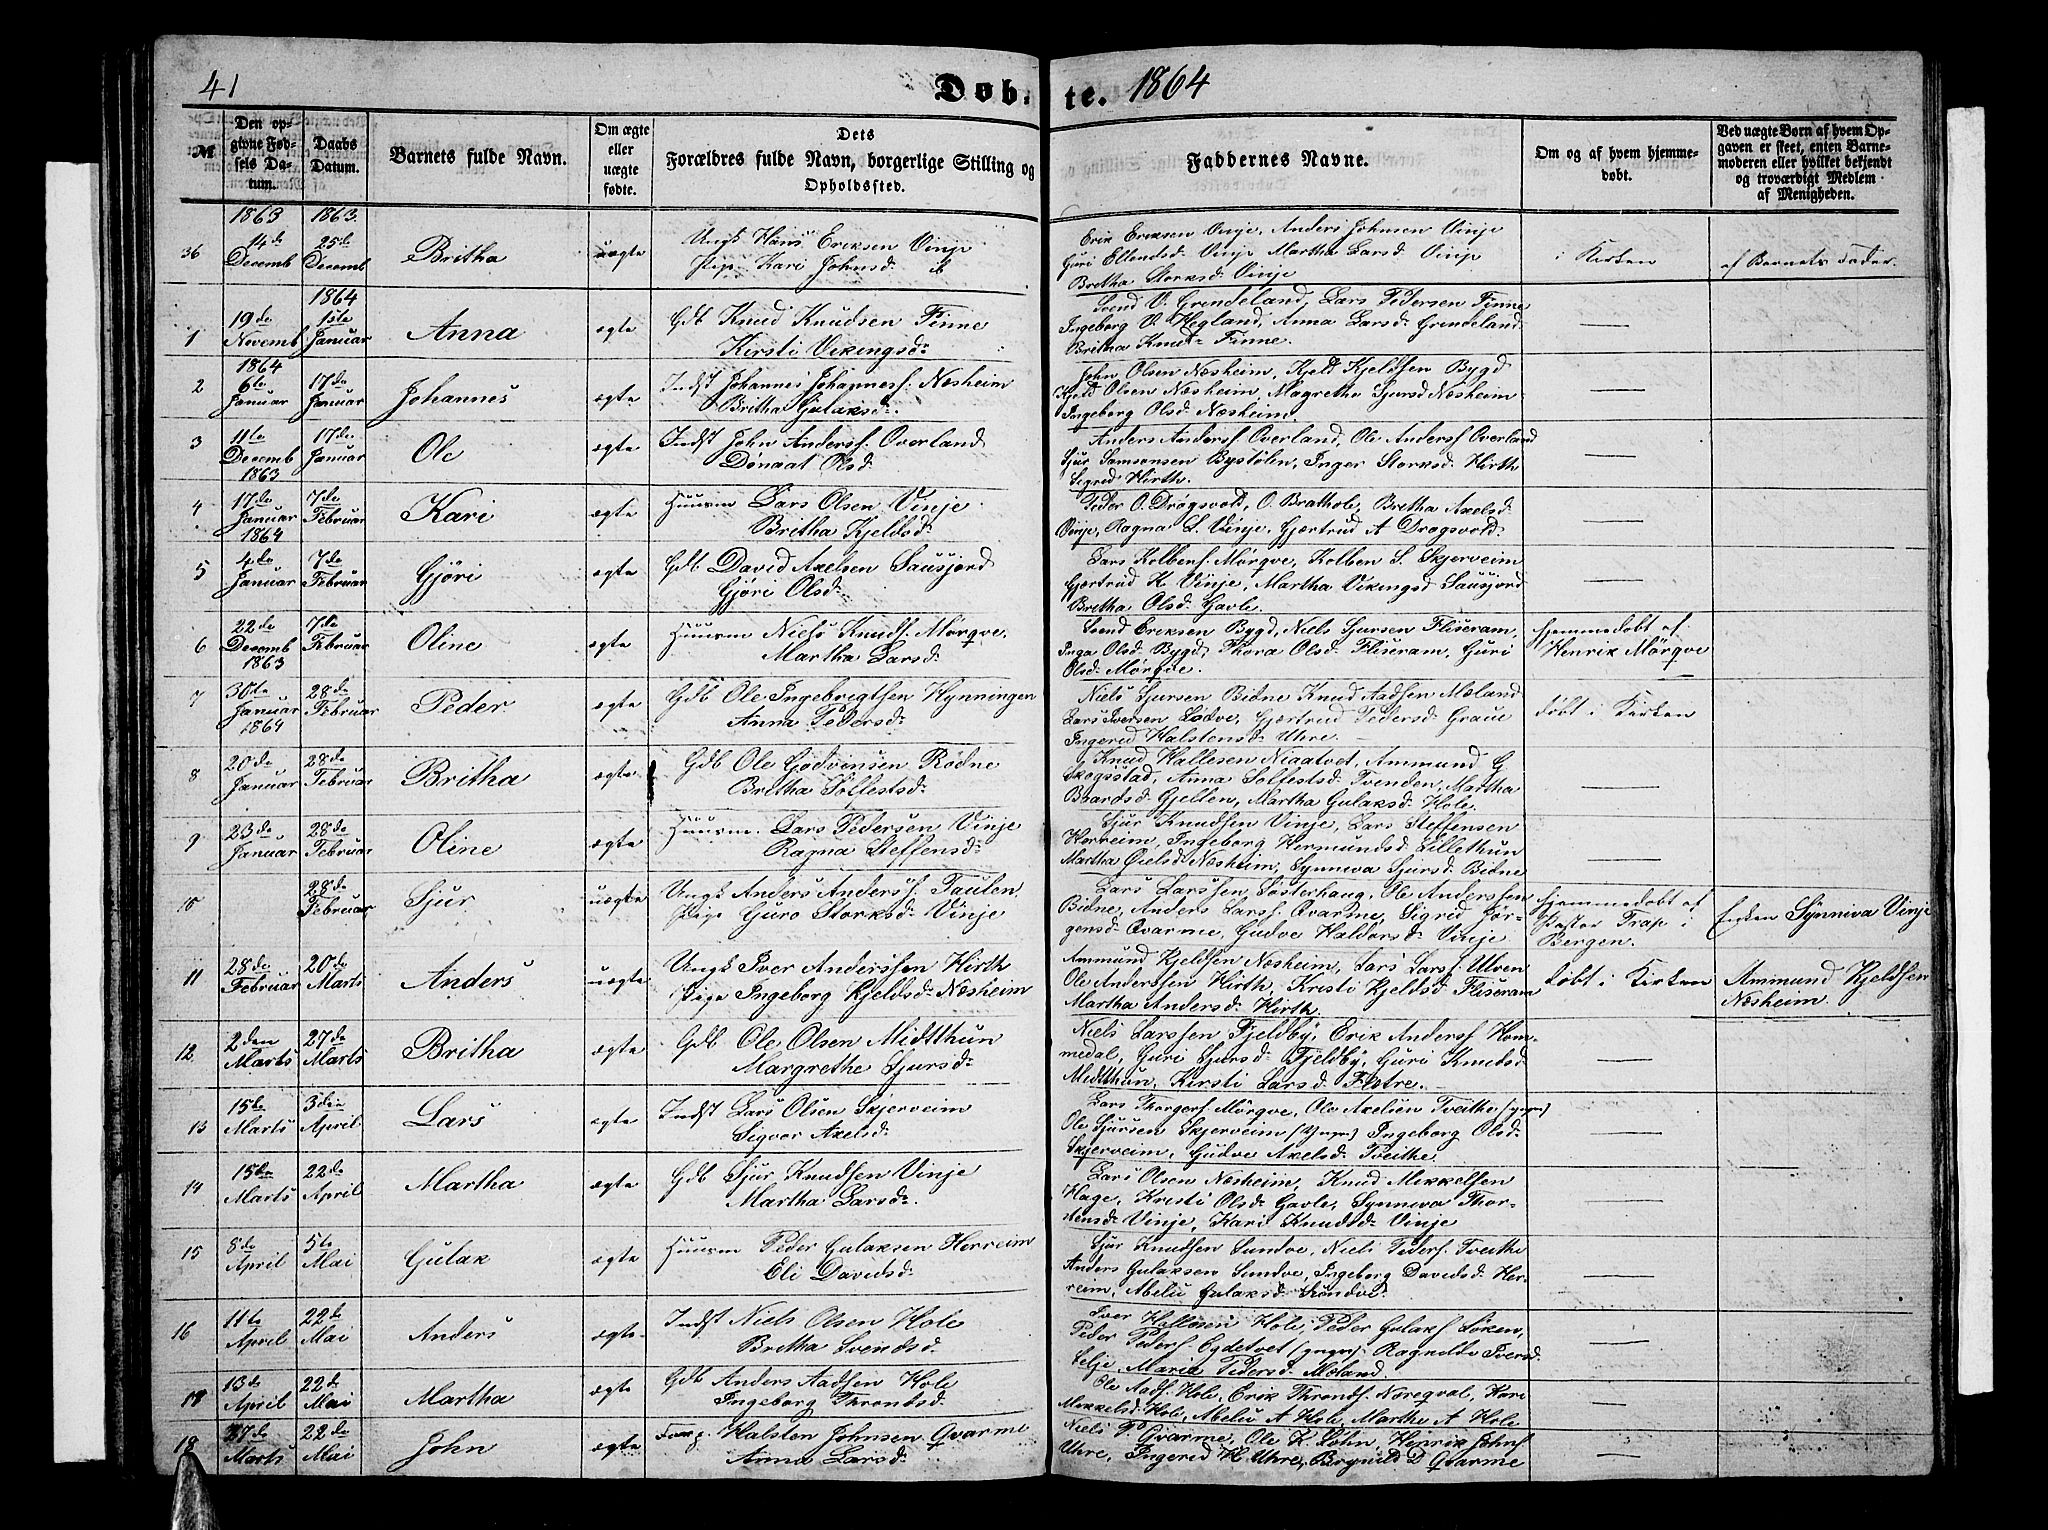 41
Døb-te. 1864
№
Den opgivne Fødsels Datum.
Daabs Datum.
Barnets fulde Navn.
Om ægte eller uægte fødte.
Dets Forældres fulde Navn, borgerlige Stilling og Opholdssted.
Faddernes Navne.
Om og af hvem hjemmedøbt.
Ved uægte Børn af hvem Opgaven er skeet, enten Barnemoderen eller hvilket bekjendt og troværdigt Medlem af Menigheden.
1863 1863.
36 14de Decemb 25de Decemb Britha uægte
Ungk Hans Eriksen Vinje
Pige Kari Johnsd: ib
Erik Eriksen Vinje, Anders Johnsen Vinje
Guri Ellendsd: Vinje Martha Larsd: Vinje
Bretha Storksd: Vinje
i Kirken
af Barnets Fader.
1864
1 19de Novemb 1ste Januar Anna ægte
Gdb Knud Knudsen Finne
Kirsti Vikingsd:
Svend V. Grindeland, Lars Pedersen Finne
Ingeborg V. Hegland, Anna Larsd: Grindeland
Britha Knudsd: Finne.
1864
2 6te Januar 17de Januar Johannes ægte
Indst Johannes Johannesf. Næsheim
Britha Gulaksd:
John Olsen Næsheim, Kjeld Kjeldsen Bygd
Kjeld Olsen Næsheim, Magretha Sjursd Næsheim
Ingeborg Olsd: Næsheim
3 11te Decemb 1863 17de Januar Ole ægte
Indst John Andersf. Overland
Dønaat Olsd:
Anders Andersf. Overland, Ole Andersf Overland
Sjur Samsonsen Bystølen, Inger Storksd: Hirth
Sigrid Hirth.
4 17de Januar 1864 7de Februar Kari ægte
Huusm Lars Olsen Vinje
Britha Kjeldsd:
Peder O. Drøgsvold, O. Brathole, Bretha Axelsd:
Vinje, Ragna L. Vinje, Gjertrud A Drogsvold:
5 4de Januar 7de Februar Gjøri ægte
Gdb David Axelsen Sausjord
Gjøri Olsd:
Lars Kolbensf. Mørqve, Kolben S. Skjerveim
Gjertrud K. Vinje, Martha Vikingsd Sausjord
Bretha Olsd: Gavle.
6 22de Decemb 1863 7de Februar Oline ægte
Huusm Niels Knudf. Mørqve.
Martha Larsd:
Svend Eriksen Bygd, Niels Sjursen Fliseram,
Inga Olsd: Bygd, Thora Olsd: Fliseram, Guri
Olsd: Mørqve.
Hjemmedøbt af
Henrik Mörqve
7 30te Januar 1864 28de Februar Peder ægte
Gdb Ole Ingebrigtsen Hynningen
Anna Pedersd:
Niels Sjursen Bidne Knud Aadsen Mæland
Lars Iversen Lødve, Gjertrud Pedersd: Graue
Ingerid Halstensd: Uhre.
døbt i Kirken
8 20de Januar 28de Februar Britha ægte
Gdb Ole Godvensen Rødne
Britha Solfestsd:
Knud Hallesen Niaatvet, Ammund G
Skogsstad, Anna Solfestsd: Tvenden, Martha
Baardsd: Gjellen, Martha Gulaksd: Hole.
9 23de Januar 28de Februar Oline ægte
Huusm. Lars Pedersen Vinje
Ragna Steffensd:
Sjur Knudsen Vinje, Lars Steffensen
Horveim, Ingeborg Hermundsd Lillethun
Martha Nielsd: Næsheim, Synneva Sjursd: Bidne
10 28de Februar Sjur uægte
Ungk Anders Andersf. Taulen
Pige Guro Storksd: Vinje
Lars Larssen Søsterhaug, Ole Anderssen
Bidne, Anders Larsf. Qvarme, Sigrid Jør-
gensd: Qvarme, Gudve Haldorsd: Vinje
Hjemmedøbt af
Pastor Trap i
Bergen.
Enken Synniva Vinje
11 28de Februar 20de Marts Anders uægte
Ungk Iver Anderssen Hirth
Pige Ingeborg Kjeldsd: Næsheim
Ammund Kjeldsen Næsheim, Lars Larsf Ulven
Ole Anderssen Hirth, Kristi Kjeldsd Fliseram
Martha Andersd: Hirth.
døbt i Kirken
Ammund Kjeldsen
Næsheim.
12 2den Marts 27de Marts Britha ægte
Gdb Ole Olsen Midtthun
Margrethe Sjursd:
Niels Larssen Fjeldby, Erik Andersf Hom-
medal, Guri Sjursd: Fjeldby, Guri Knudsd
Midtthun, Kirsti Larsd: Flatre.
13 15de Marts 3die April Lars ægte
Indst Lars Olsen Skjerveim
Sigvor Axelsd:
Lars Thorgersf. Mørqve, Ole Axelsen Tveithe (yngre)
Ole Sjursen Skjerveim (Yngre) Ingeborg Olsd:
Skjerveim, Gudve Axelsd: Tveithe.
14 15de Marts 22de April Martha ægte
Gdb Sjur Knudsen Vinje
Martha Larsd:
Lars Olsen Næsheim, Knud Mikkelsen
Hage, Kristi Olsd: Gavle, Synneva Thor-
stensd: Vinje, Kari Knudsd: Vinje
15 8de April 5te Mai Gulak ægte
Huusm Peder Gulaksen Herreim
Eli Davidsd:
Sjur Knudsen Sundve, Niels Pedersf. Tveithe
Anders Gulaksen Sundve, Ingeborg Davidsd: Her-
reim, Abelu Gulaksd: Sundve.
16 11te April 22de Mai Anders ægte
Indst Niels Olsen Hole
Britha Svendsd:
Iver Hallesen Hole, Peder Gulaksf Løken,
Peder Pedersf Egdetvet (yngre) Ragnilde Iversd:
Selje, Maria Pedersd: Mæland
17 13de April 22de Mai Martha ægte
Gdb Anders Aadsen Hole
Ingeborg Throndsd:
Ole Aadsf: Hole, Erik Throndsf. Nøreqval, Kari
Mikkelsd: Hole, Abelu A Hole, Martha A Hole
18 27de Marts 22de Mai John ægte
Halsten Johnsen Qvarme
Anna Larsd:
Niels P Qvarme, Ole K. Løhn, Henrik Johnsf
Uhre, Ingerid H. Uhre, Brynild D Qvarme